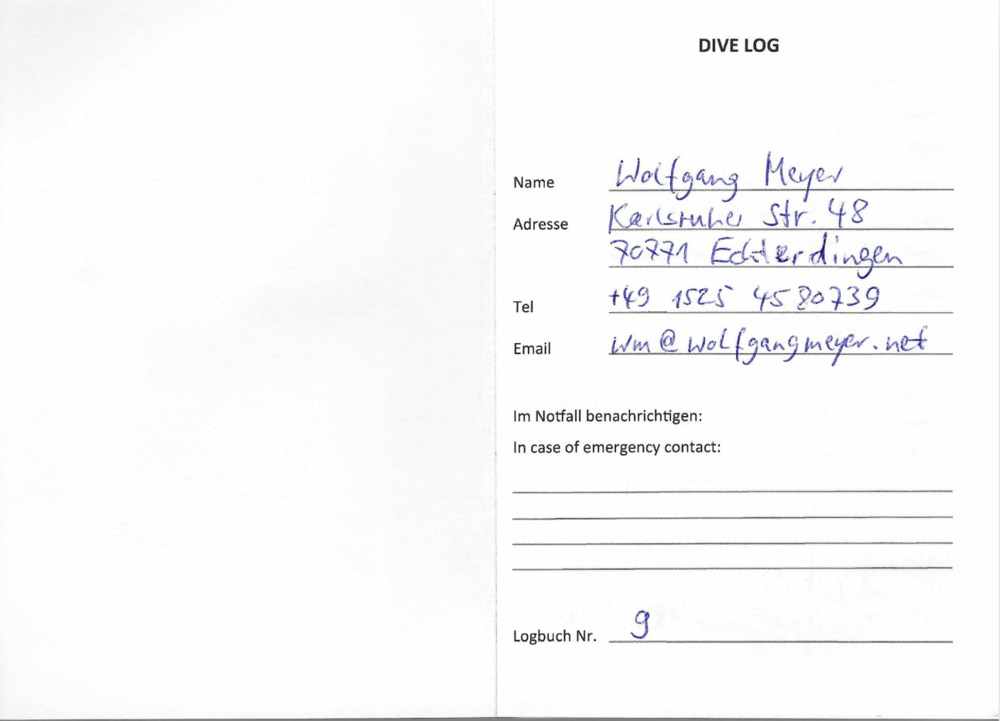 DIVE LOG
Name Wolfgang Meyer
Adresse Karlsruher Str. 48
70771 Echterdingen
Tel +49 1525 4580739
Email wm@wolfgangmeyer.net
Im Notfall benachrichtigen:
In case of emergency contact:
Logbuch Nr. 9